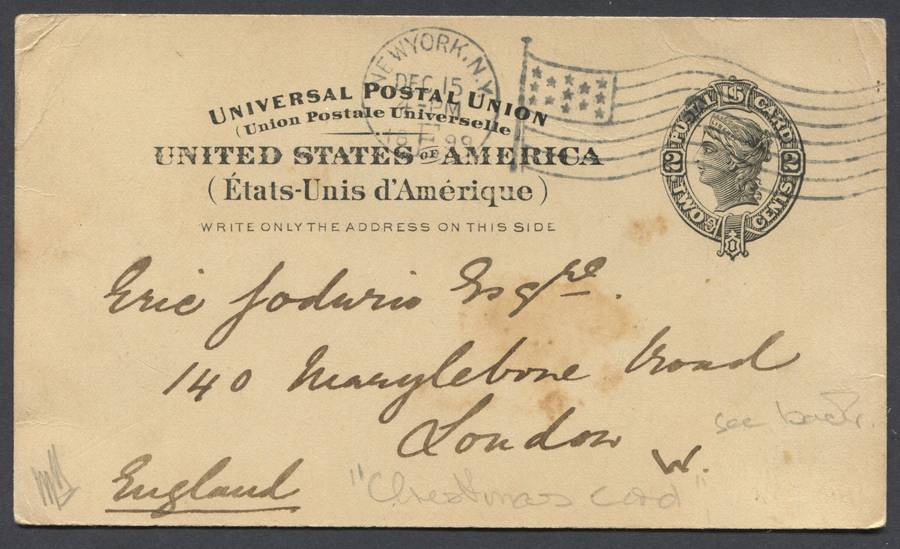 NEW YORK, N.Y.
DEC 15
4-PM
18 99
UNIVERSAL POSTAL UNION
(Union Postale Universelle)
UNITED STATES OF AMERICA
(États-Unis d'Amérique)
WRITE ONLY THE ADDRESS ON THIS SIDE
POSTAL CARD
2 2
TWO CENTS
Eric Esqre.
140 Marylebone Road
London
W.
see back.
England
"Christmas card"